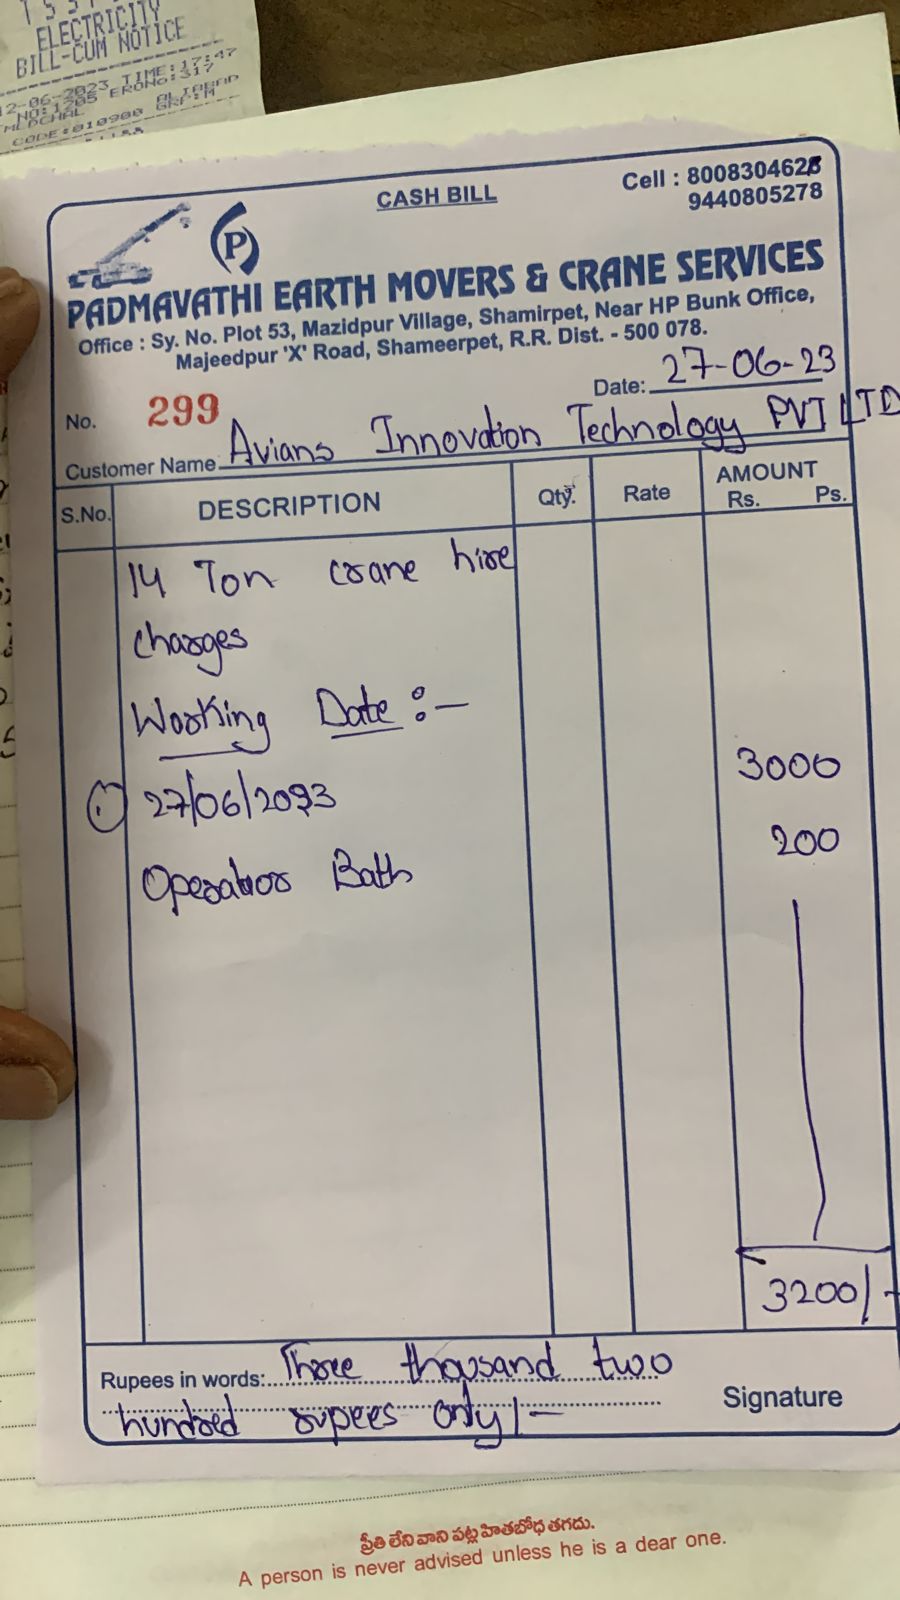 ELECTRICITY
BILL-CUM NOTICE
12-06-2023 TIME:17:47
NO:1205 ERONo:317
CODE:010900 GRP:M
CASH BILL
Cell : 8008304628
9440805278
P
PADMAVATHI EARTH MOVERS & CRANE SERVICES
Office : Sy. No. Plot 53, Mazidpur Village, Shamirpet, Near HP Bunk Office,
Majeedpur 'X' Road, Shameerpet, R.R. Dist. - 500 078.
No. 299 Date: 27-06-23
Customer Name Avians Innovation Technology PVT LTD
S.No. DESCRIPTION Qty. Rate AMOUNT
Rs. Ps.
14 Ton crane hire
charges
Working Date :-
1. 27/06/2023 3000
Operator Bath 200
3200/-
Rupees in words: Three thousand two
hundred rupees only/-
Signature
ప్రీతి లేని వాని పట్ల హితబోధ తగదు.
A person is never advised unless he is a dear one.